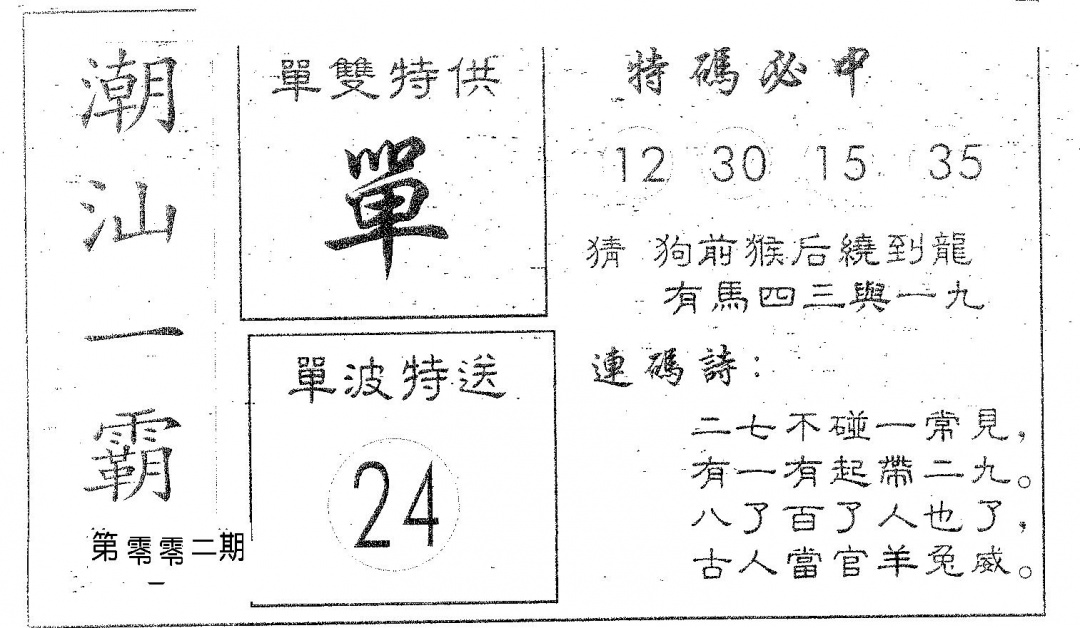 潮汕一霸
第零零二期
單雙特供
單
單波特送
24
特碼必中
12 30 15 35
猜 狗前猴后繞到龍
有馬四三與一九
連碼詩：
二七不碰一常見，
有一有起帶二九。
八了百了人也了，
古人當官羊兔威。